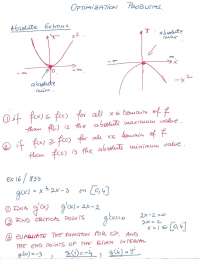 OPTIMIZATION PROBLEMS
Absolute Extrema
x²
-∞ ∞
absolute
min.
absolute
max.
-∞ ∞
-x²
① if f(c) ≥ f(x) for all x in domain of f
then f(c) is the absolute maximum value.
② if f(c) ≤ f(x) for all x in domain of f
then f(c) is the absolute minimum value.
g(x) = x² 2x - 3 on [0,4]
① FIND g'(x) g'(x) = 2x - 2
② FIND CRITICAL POINTS g'(x) = 0 2x - 2 = 0
2x = 2
x = 1 ∈ [0,4]
③ EVALUATE THE FUNCTION FOR CP, AND
THE END POINTS OF THE GIVEN INTERVAL
g(0) = -3, g(1) = -4, g(4) = 5